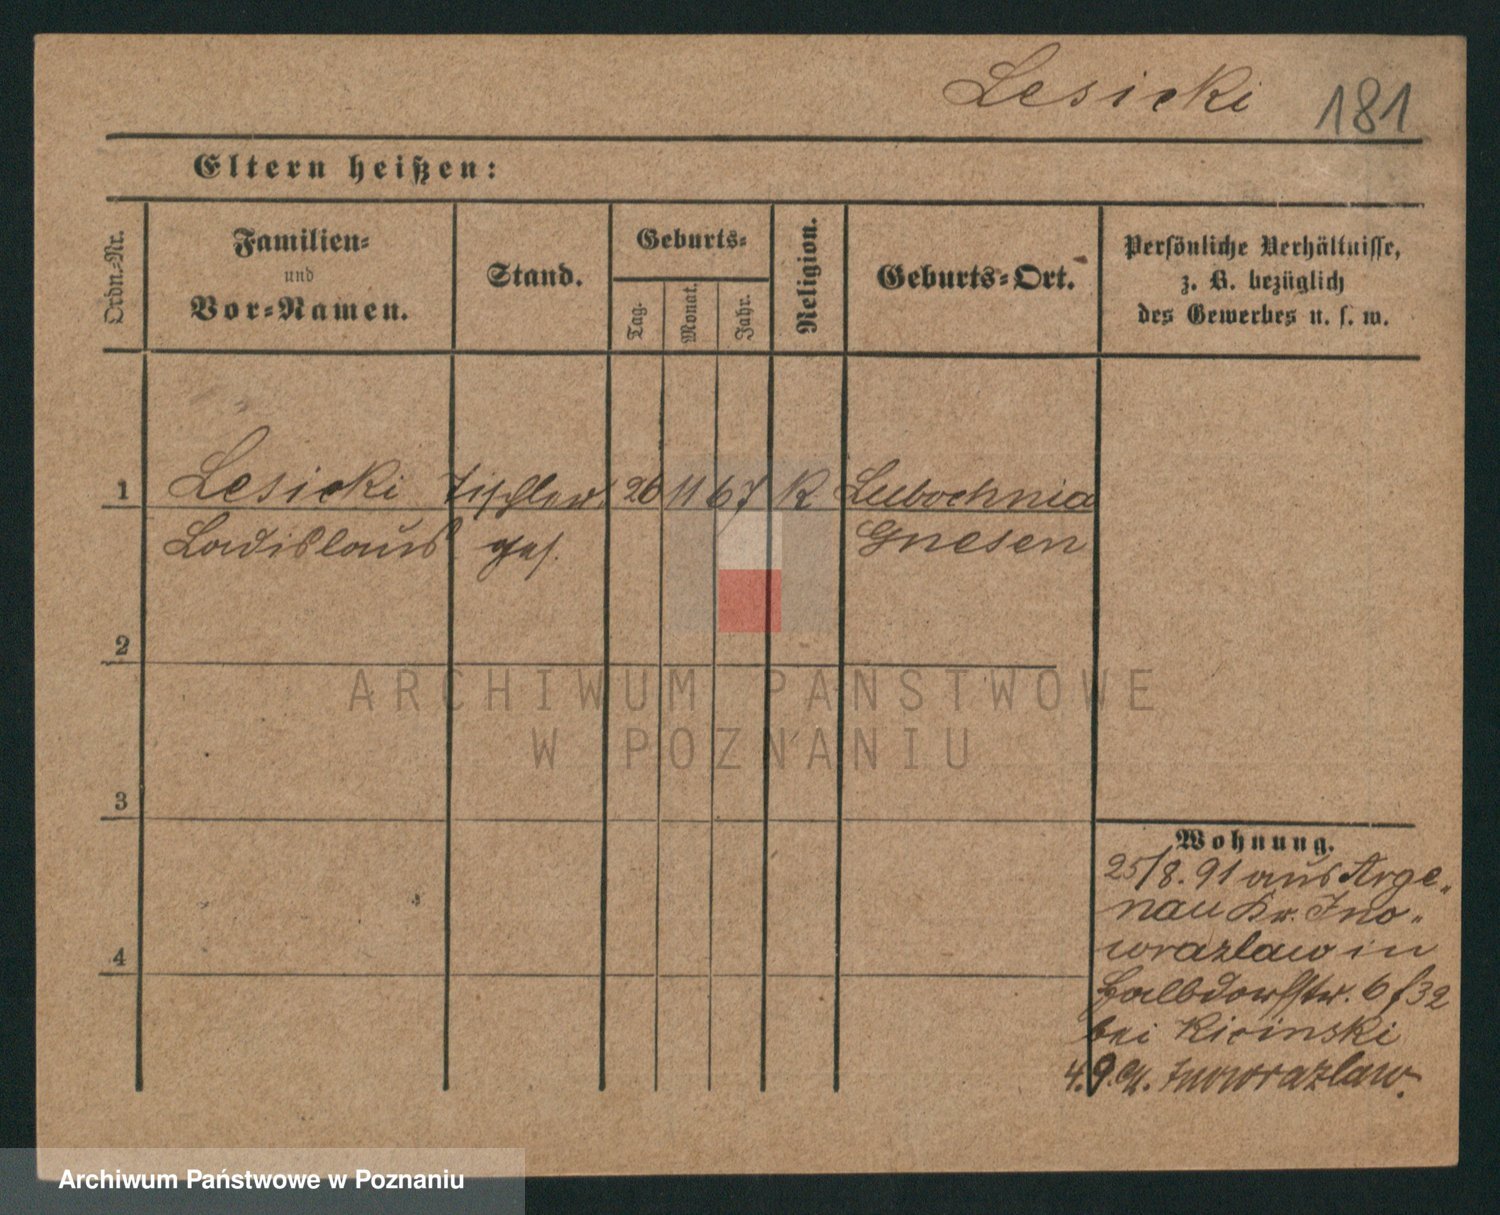 Lesicki 181
Eltern heißen:
Ordn.-Nr.
Familien-
und
Vor-Namen.
Stand.
Geburts-
Tag.
Monat.
Jahr.
Religion.
Geburts-Ort.
Persönliche Verhältnisse,
z. B. bezüglich
des Gewerbes u. s. w.
1 Lesicki Tischler 26 11 67 K Lubochnia
Ladislaus ges. Gnesen
2
3
4
Wohnung.
25/8. 91 aus Arge-
nau Kr. Ino-
wrazlaw in
Halbdorfstr. 6 f 32
bei Kicinski
4. 9. 91. Inowrazlaw.
ARCHIWUM PAŃSTWOWE
W POZNANIU
Archiwum Państwowe w Poznaniu